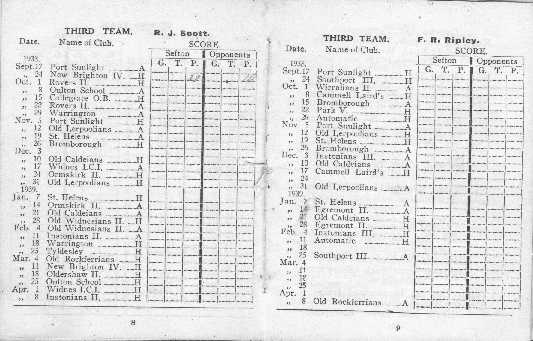 THIRD TEAM. R. J. Scott.
Date. Name of Club. SCORE.
Sefton Opponents
1938. G. T. P. G. T. P.
Sept.17 Port Sunlight A
„ 24 New Brighton IV. H
Oct. 1 Rovers II. H
„ 8 Oulton School A
„ 15 Collegiate O.B. H
„ 22 Rovers II. A
„ 29 Warrington A
Nov. 5 Port Sunlight H
„ 12 Old Lerpoolians A
„ 19 St. Helens A
„ 26 Bromborough H
Dec. 3
„ 10 Old Caldeians H
„ 17 Widnes I.C.I. A
„ 24 Ormskirk II. H
„ 31 Old Lerpoolians H
1939.
Jan. 7 St. Helens H
„ 14 Ormskirk II. A
„ 21 Old Caldeians A
„ 28 Old Widnesians II. H
Feb. 4 Old Widnesians II. A
„ 11 Instonians II. A
„ 18 Warrington H
„ 25 Tyldesley H
Mar. 4 Old Rockferrians A
„ 11 New Brighton IV. H
„ 18 Oldershaw II. H
„ 25 Oulton School H
Apr. 1 Widnes I.C.I. H
„ 8 Instonians II. H
8
THIRD TEAM. F. R. Ripley.
Date. Name of Club. SCORE.
Sefton Opponents
1938. G. T. P. G. T. P.
Sept.17 Port Sunlight H
„ 24 Southport III. H
Oct. 1 Wirralians II. A
„ 8 Cammell Laird's H
„ 15 Bromborough A
„ 22 Parx V. H
„ 29 Automatic H
Nov 5 Port Sunlight A
„ 12 Old Lerpoolians H
„ 19 St. Helens H
„ 26 Bromborough A
Dec. 3 Instonians III. A
„ 10 Old Caldeians A
„ 17 Cammell Laird's H
„ 24
„ 31 Old Lerpoolians A
1939.
Jan. 7 St. Helens A
„ 14 Egremont II. A
„ 21 Old Caldeians H
„ 28 Egremont II. H
Feb. 4 Instonians III. H
„ 11 Automatic H
„ 18
„ 25 Southport III. A
Mar. 4
„ 11
„ 18
„ 25
Apr. 1
„ 8 Old Rockferrians A
9